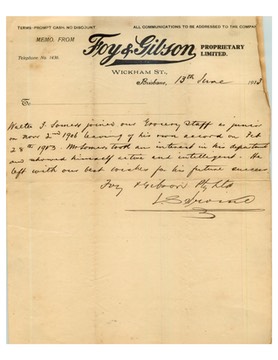 TERMS: PROMPT CASH. NO DISCOUNT.
ALL COMMUNICATIONS TO BE ADDRESSED TO THE COMPANY
MEMO. FROM
Foy & Gibson PROPRIETARY LIMITED.
Telephone No. 1436.
WICKHAM ST.,
Brisbane, 13th June
To
Walter J. Somers joined our Grocery Staff as junior
on Nov 2nd 1906 leaving of his own accord on Feb
28th Mr Somers took an interest in his department
and showed himself active and intelligent. He
left with our best wishes for his future success
Foy & Gibson Pty Ltd